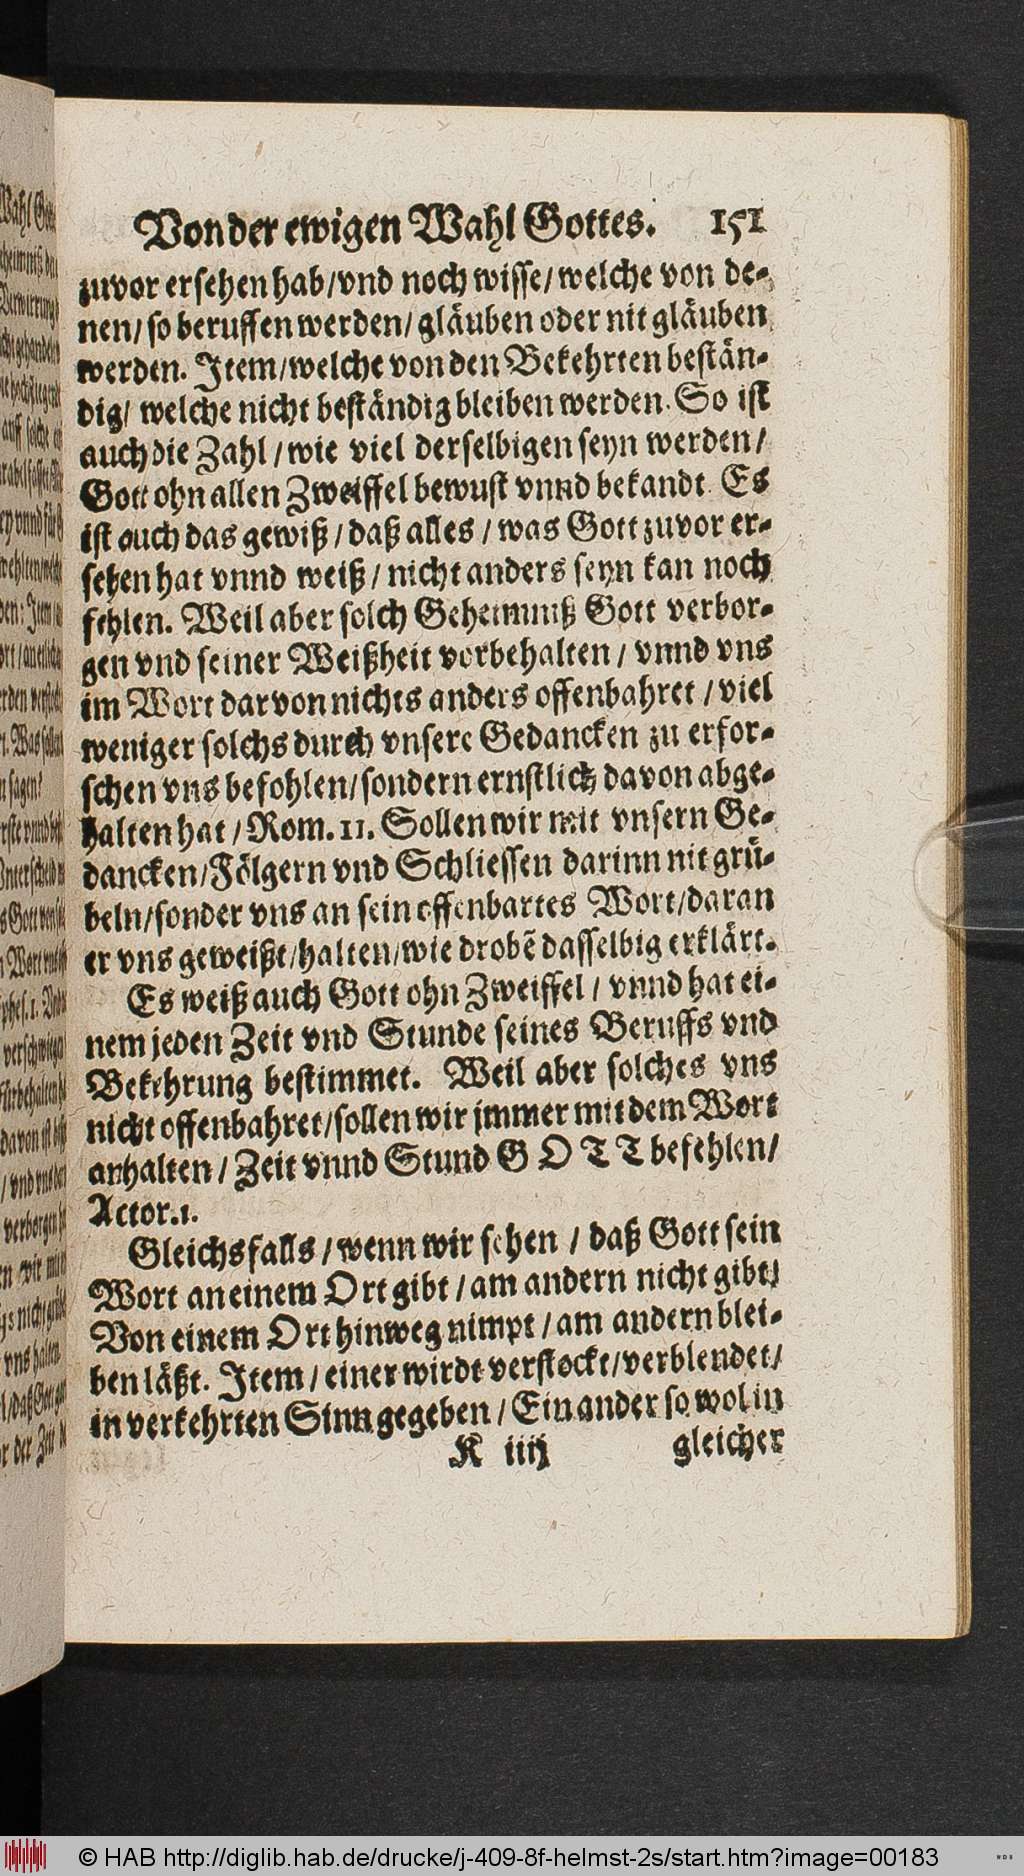 Von der ewigen Wahl Gottes. 151
zuvor ersehen hab/vnd noch wisse/welche von de-
nen/so beruffen werden/gläuben oder nit gläuben
werden. Item/welche von den Bekehrten bestän-
dig/ welche nicht beständig bleiben werden. So ist
auch die Zahl/wie viel derselbigen seyn werden/
Gott ohn allen Zweiffel bewust vnnd bekandt. Es
ist auch das gewiß/daß alles/was Gott zuvor er-
sehen hat vnnd weiß/nicht anders seyn kan noch
fehlen. Weil aber solch Geheimniß Gott verbor-
gen vnd seiner Weißheit vorbehalten/vnnd vns
im Wort darvon nichts anders offenbahret/viel
weniger solchs durch vnsere Gedancken zu erfor-
schen vns befohlen/sondern ernstlich davon abge-
halten hat/Rom. 11. Sollen wir mit vnsern Ge-
dancken/Fölgern vnd Schliessen darinn nit grü-
beln/sonder vns an sein offenbartes Wort/daran
er vns geweißt/halten/wie drobẽ dasselbig erklärt.
Es weiß auch Gott ohn Zweiffel/vnnd hat ei-
nem jeden Zeit vnd Stunde seines Beruffs vnd
Bekehrung bestimmet. Weil aber solches vns
nicht offenbahret/sollen wir jmmer mit dem Wort
anhalten/Zeit vnnd Stund GOTT befehlen/
Actor.1.
Gleichsfalls/wenn wir sehen/daß Gott sein
Wort an einem Ort gibt/am andern nicht gibt/
Von einem Ort hinweg nimpt/am andern blei-
ben läßt. Item/einer wirdt verstockt/verblendet/
in verkehrten Sinn gegeben/Ein ander so wol in
K iiij gleicher
© HAB http://diglib.hab.de/drucke/j-409-8f-helmst-2s/start.htm?image=00183